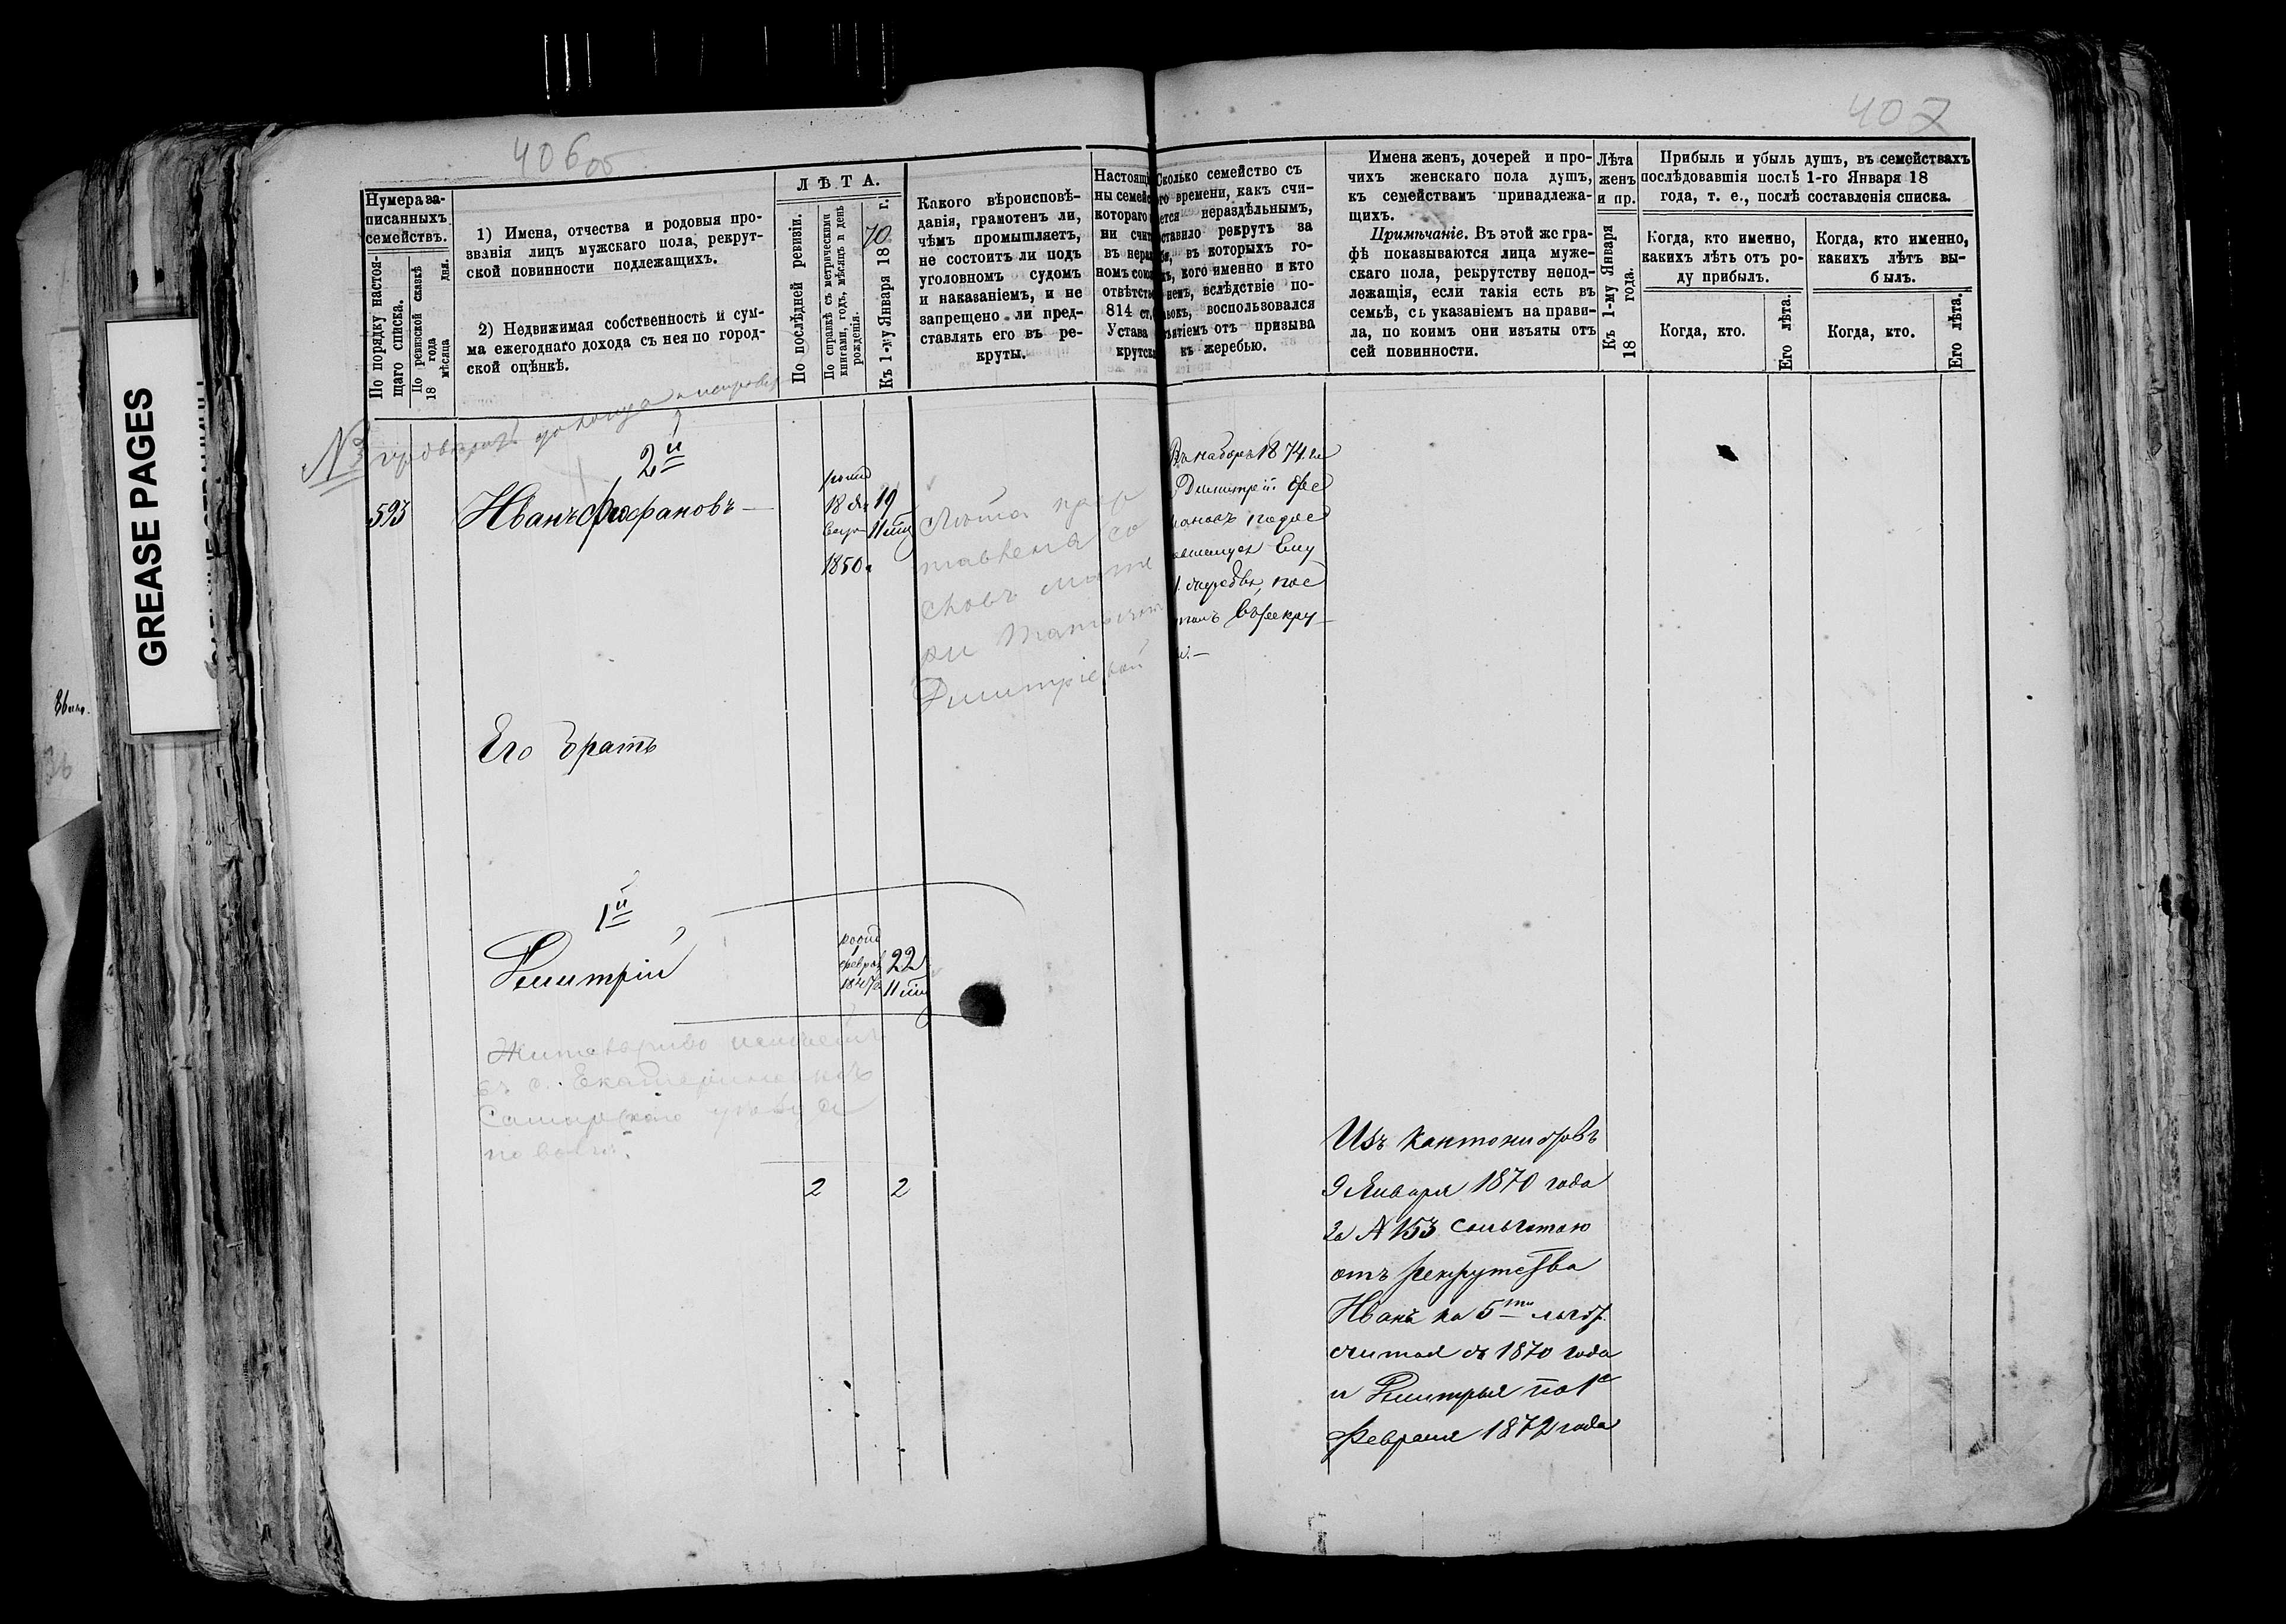 406 об
402
GREASE PAGES
Нумера за-
писанныхъ
семействъ.
По порядку настоя-
щаго списка.
По ревизской сказкѣ
18 года
мѣсяца дня.
1) Имена, отчества и родовыя про-
званія лицъ мужскаго пола, рекрут-
ской повинности подлежащихъ.
2) Недвижимая собственность и сум-
ма ежегоднаго дохода съ нея по город-
ской оцѣнкѣ.
ЛѢТА.
По послѣдней ревизіи.
По справкѣ съ метрическими
книгами, годъ, мѣсяцъ и день
рожденія.
Къ 1-му Января 1870 г.
Какого вѣроисповѣ-
данія, грамотенъ ли,
чѣмъ промышляетъ,
не состоитъ ли подъ
уголовномъ судомъ
и наказаніемъ, и не
запрещено ли пред-
ставлять его въ ре-
круты.
Настоящі
ны семейс
котораго
ни счит
въ нера
номъ сою
отвѣтст
814 ст.
Устава
крутск
Сколько семейство съ
го времени, какъ счи-
ется нераздѣльнымъ,
ставило рекрутъ за
въ которыхъ го-
кого именно и кто
немъ, вслѣдствіе по-
воспользовался
ятіемъ отъ призыва
къ жеребью.
Имена женъ, дочерей и про-
чихъ женскаго пола душъ,
къ семействамъ принадлежа-
щихъ.
Примѣчаніе. Въ этой же гра-
фѣ показываются лица муже-
скаго пола, рекрутству непод-
лежащія, если такія есть въ
семьѣ, съ указаніемъ на прави-
ла, по коимъ они изъяты отъ
сей повинности.
Лѣта
женъ
и пр.
Къ 1-му Января
18 года.
Прибыль и убыль душъ, въ семействахъ
послѣдовавшія послѣ 1-го Января 18
года, т. е., послѣ составленія списка.
Когда, кто именно,
какихъ лѣтъ отъ ро-
ду прибылъ.
Когда, кто.
Его лѣта.
Когда, кто именно,
какихъ лѣтъ вы-
былъ.
Когда, кто.
Его лѣта.
2й
593
Иванъ Феофановъ
19
11 мѣс
1850 г
Лѣта
со
словъ мате
ри
Димитріевой
Въ наборъ 1874 г
Димитрій Фео
фановъ
Ему
въ рекру
Его братъ
1й
Дмитрій
рожд
феврал
1847
22
11 мѣс
Жительство имѣетъ
въ с. Екатериновкѣ
Самарскаго уѣзда
2
2
Изъ кантонистовъ
9 Января 1870 года
за № 153 сольготою
отъ рекрутства
Ивана на 5
считая съ 1870 года
и Дмитрія по 1е
Февраля 1872 года